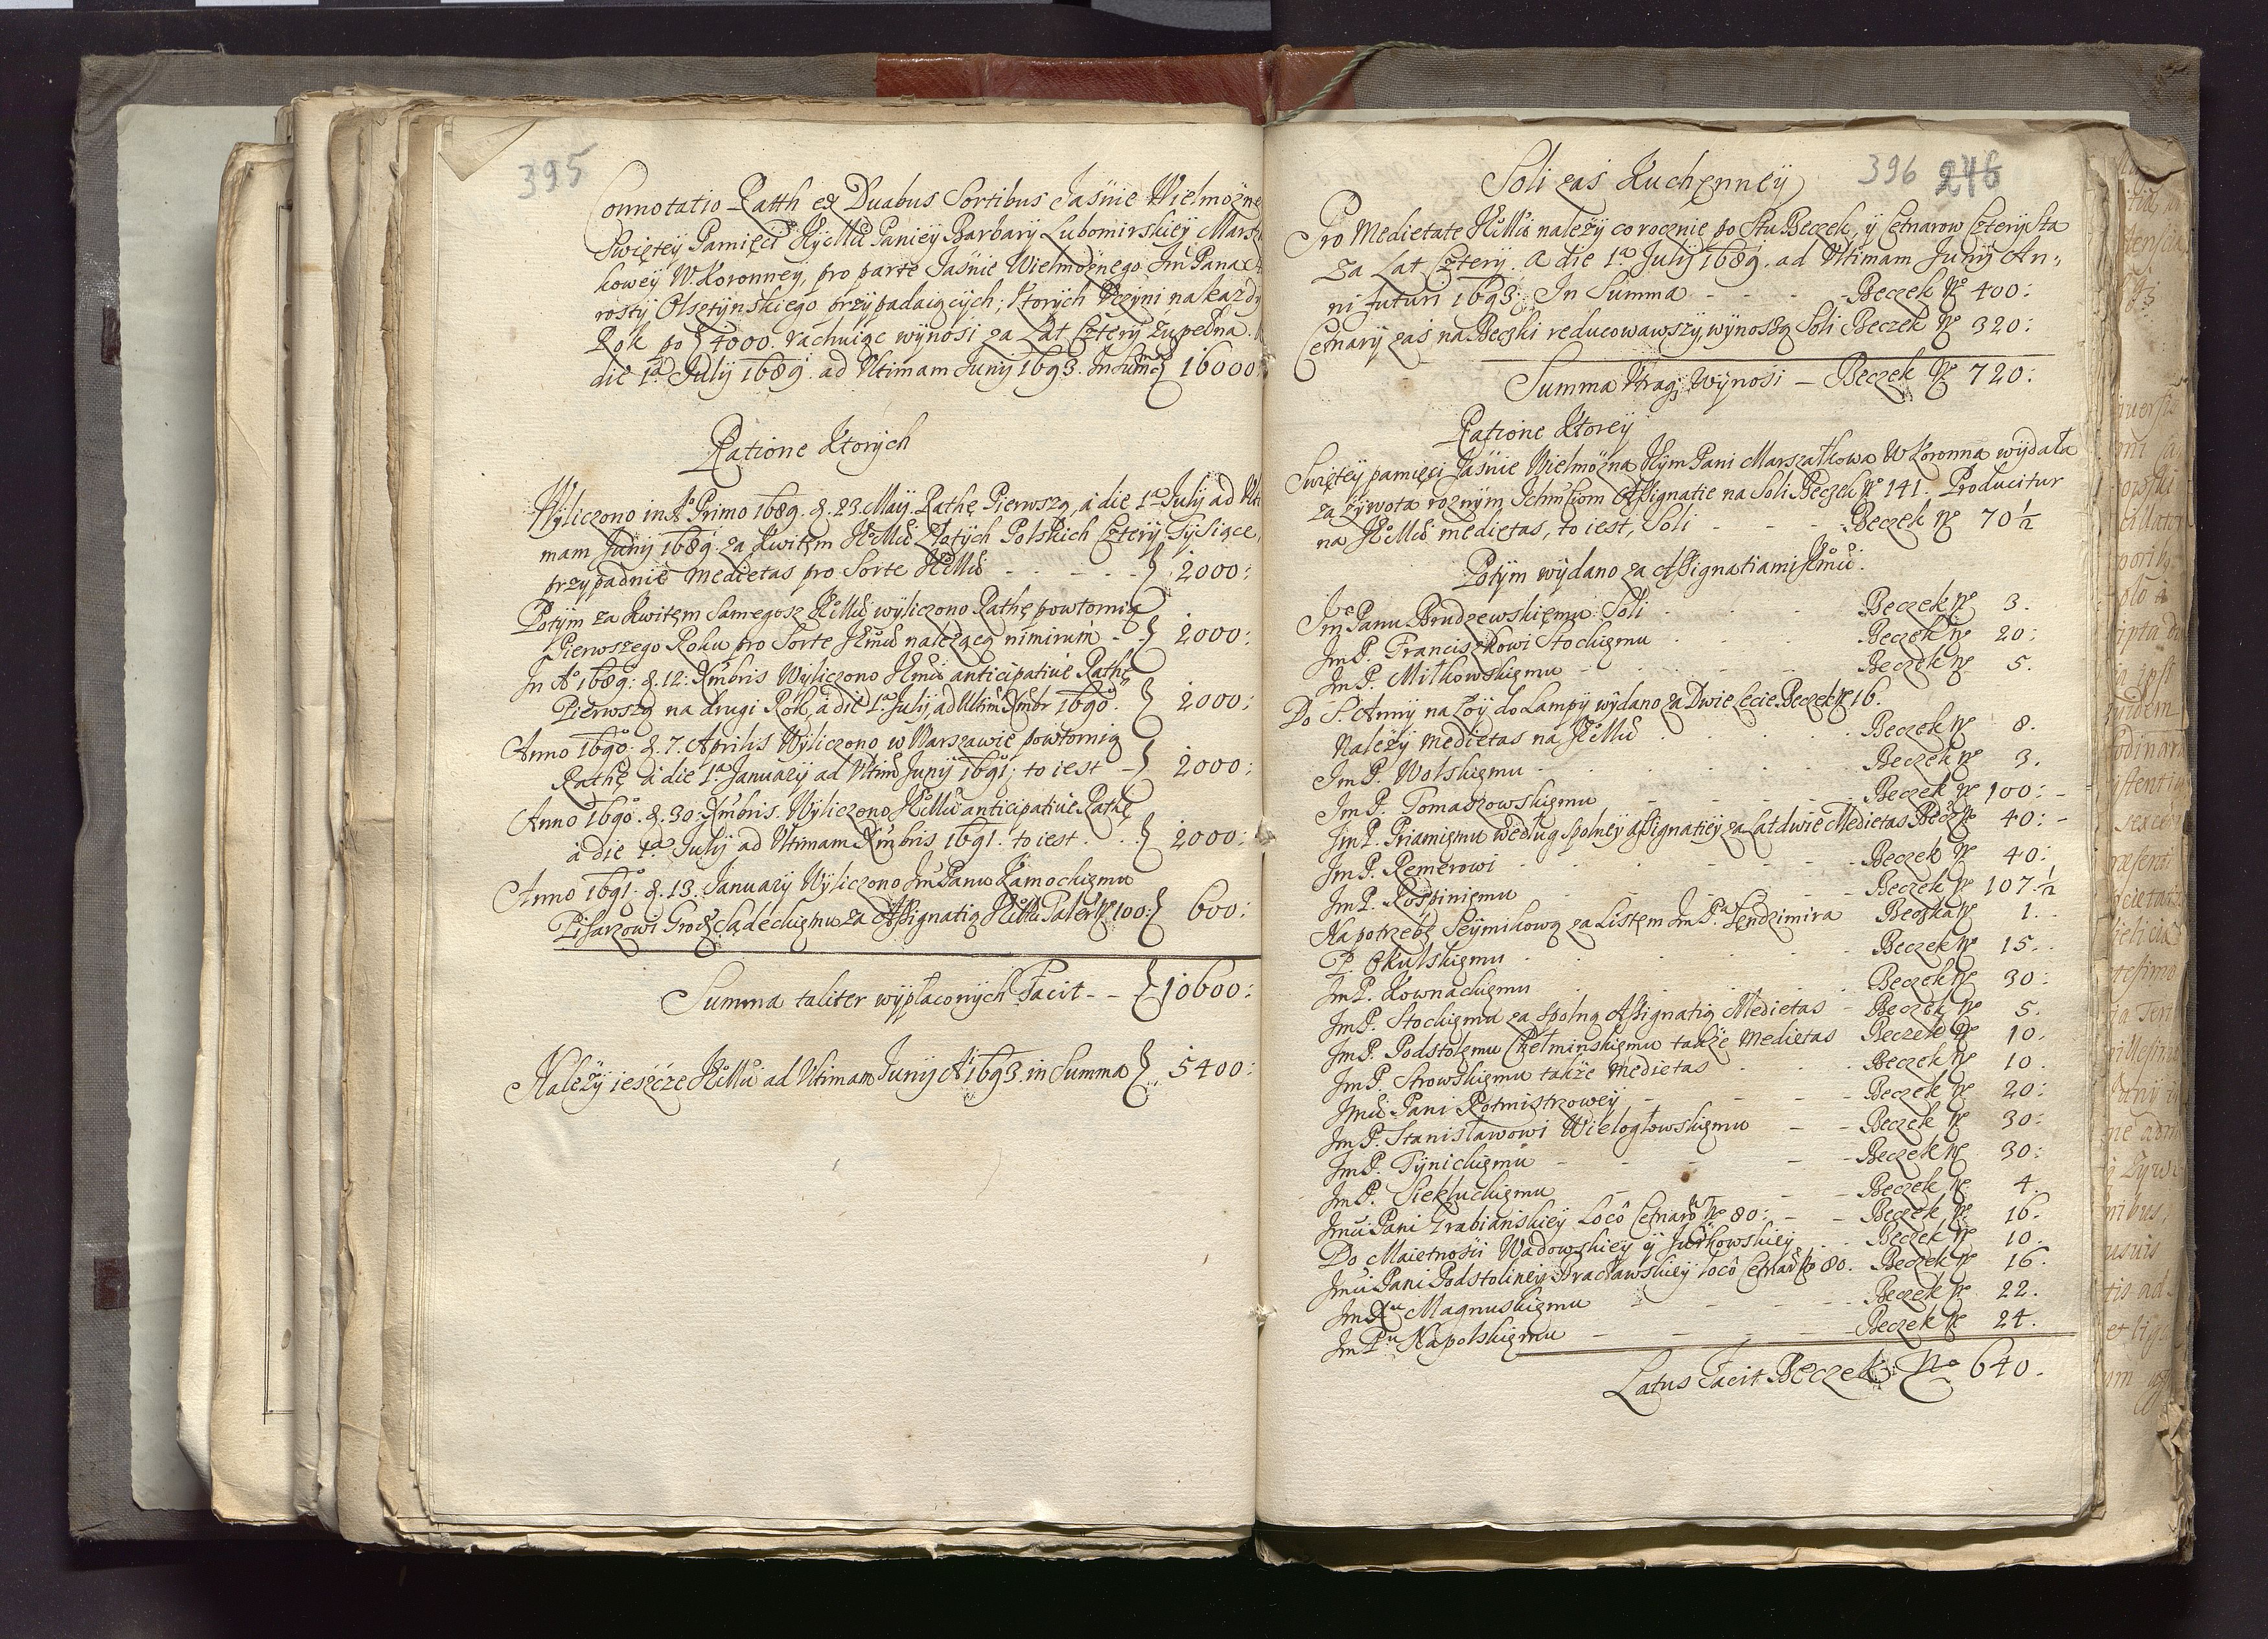 395
Connotatio Rath ex Duabus Sortibus Jaśnie Wielmożne
Swiętey Pamięci Paniey Barbary Lubomirskiey Marsz
kowey W. Koronney, pro parte Jaśnie Wielmożnego Jm Pana
rosty Olsztynskiego przypadaiących; Ktorych Uczyni na każdy
Rok po 4000. rachuiąc wynosi za Lat Cztery zupełna.
die 1a July 1689. ad Ultimam Juny 1693. In Suma 16000
Ratione Ktorych
Wyliczono in Ao Primo 1689. d. 23. May. Rathę Pierwszą, a die 1a July ad Ulti
mam Juny 1689. za Kwitem Złotych Polskich Cztery Tysiące,
przypadnie medietas pro Sorte - - - - - 2000:
Potym za Kwitem Samegosz wyliczono Rathę powtorną
Pierwszego Roku pro Sorte należącą nimirum - - 2000:
In Ao 1689: d. 12: Xmbris Wyliczono anticipative Rathę
Pierwszą na drugi Rok, a die 1a July, ad Ultim Xmbr 1690. 2000:
Anno 1690. d. 7. Aprilis Wyliczono w Warszawie powtorną
Rathę a die 1a January ad Ultim Juny 1691; to iest - 2000:
Anno 1690. d. 30. Xmbris. Wyliczono anticipative Rathę
a die 1a July ad Ultimam Xmbris 1691. to iest . . . 2000:
Anno 1691. d. 13. January Wyliczono Jm Panu Zamochiemu
Pisarzowi Grodz: Sądeckiemu za Assignatią Taler No 100: 600:
Summa taliter wypłaconych Facit - - 10600:
Należy ieszcze ad Ultimam Juny Ai 1693. in Summa 5400:
396 246
Soli zaś Kuchenney
Pro Medietate należy corocznie po Stu Beczek, y Cetnarow Czterysta
za Lat Cztery. a die 1a July 1689. ad Ultimam Juny An,,
ni futuri 1693. In Summa - - - - Beczek No 400:
Cetnary zaś na Beczki reducowawszy, wynoszą Soli Beczek No 320:
Summa Wynosi - Beczek No 720:
Ratione Ktorey
Swiętey pamięci Jaśnie Wielmożna Jeym Pani Marszałkowa W Koronna wydała
za żywota roznym Ichmściom Assignatie na Soli Beczek No 141. Producitur
na medietas, to iest, Soli - - - Beczek No 70 1/2
Potym wydano za Assignatiami
Jm Panu Brudzewskiemu Soli . . . Beczek No 3.
Jm P. Franciszkowi Stockiemu . . . Beczek No 20:
Jm P. Miłkowskiemu - . . . . Beczek No 5.
Do S. Anny na Łoy do Lampy wydano za Dwie Lecie Beczek No 16.
Należy medietas na . . . . Beczek No 8.
Jm P. Wolskiemu . . . . Beczek No 3.
Jm P. Tomaszowskiemu - - - - Beczek No 100: -
Jm P. Priamiemu według spolney Assignatiey za Lat dwie Medietas Becz No 40: -
Jm P. Remerowi . . - - - Beczek No 40:
Jm P. Rospiniemu - - - - Beczek No 107. 1/2
Na potrzebę Seymikową za Listem Jm Pa Sendzimira Beczka No 1.
P. Okulskiemu . . . . Beczek No 15.
Jm P. Kownackiemu . . . . Beczek No 30:
Jm P. Stockiemu za spolną Assignatią Medietas - Beczek No 5.
Jm P. Podstolemu Chełminskiemu także medietas Beczek No 10.
Jm P. Strowskiemu także medietas . . . Beczek No 10.
Jmci Pani Rotmistrzowey - - - Beczek No 20:
Jm P. Stanisławowi Wielogłowskiemu - - Beczek No 30:
Jm P. Tynickiemu - - - - Beczek No 30:
Jm P. Siekluckiemu - - - Beczek No 4.
Jmci Pani Grabianskiey Locô Cetnaro No 80: - - Beczek No 16.
Do Maietnosci Wadowskiey y Jurkowskiey . . . Beczek No 10.
Jmci Pani Podstoliney Bracławskiey locô Cetnar No 80. Beczek No 16.
Jm Xu Magnuskiemu - - - - Beczek No 22.
Jm Pu Napolskiemu - - - - Beczek No 24.
Latus Facit Beczek No 640.